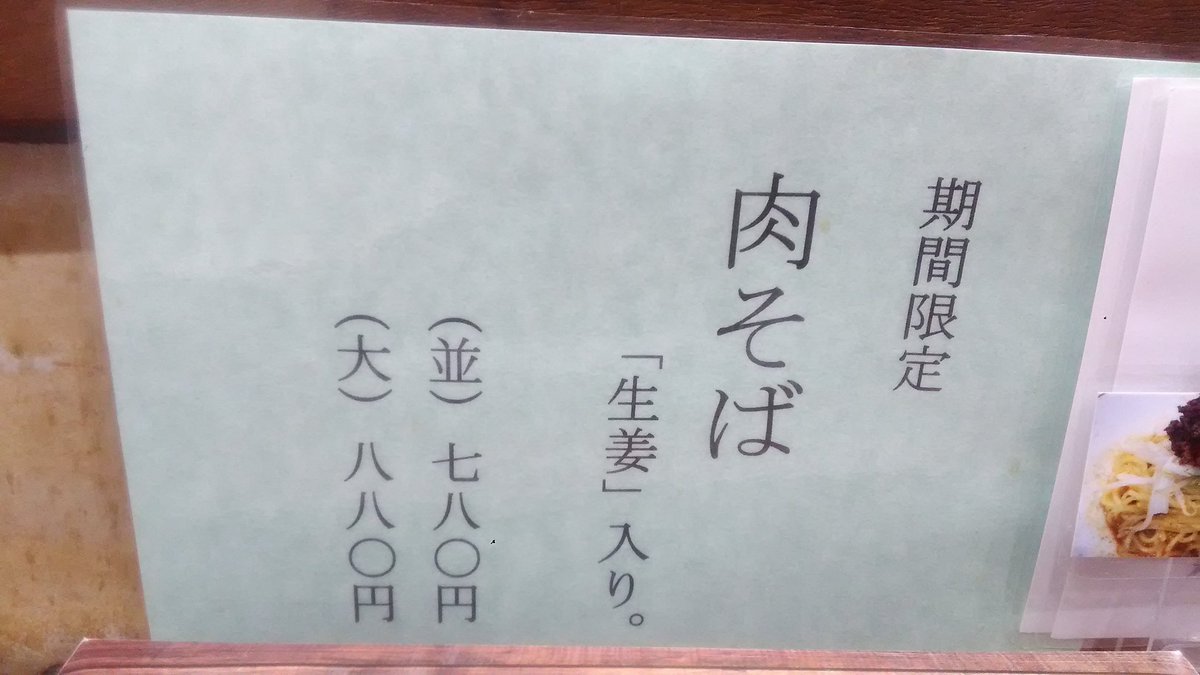 期間限定
肉そば
「生姜」入り。
（並） 七八〇円
（大） 八八〇円